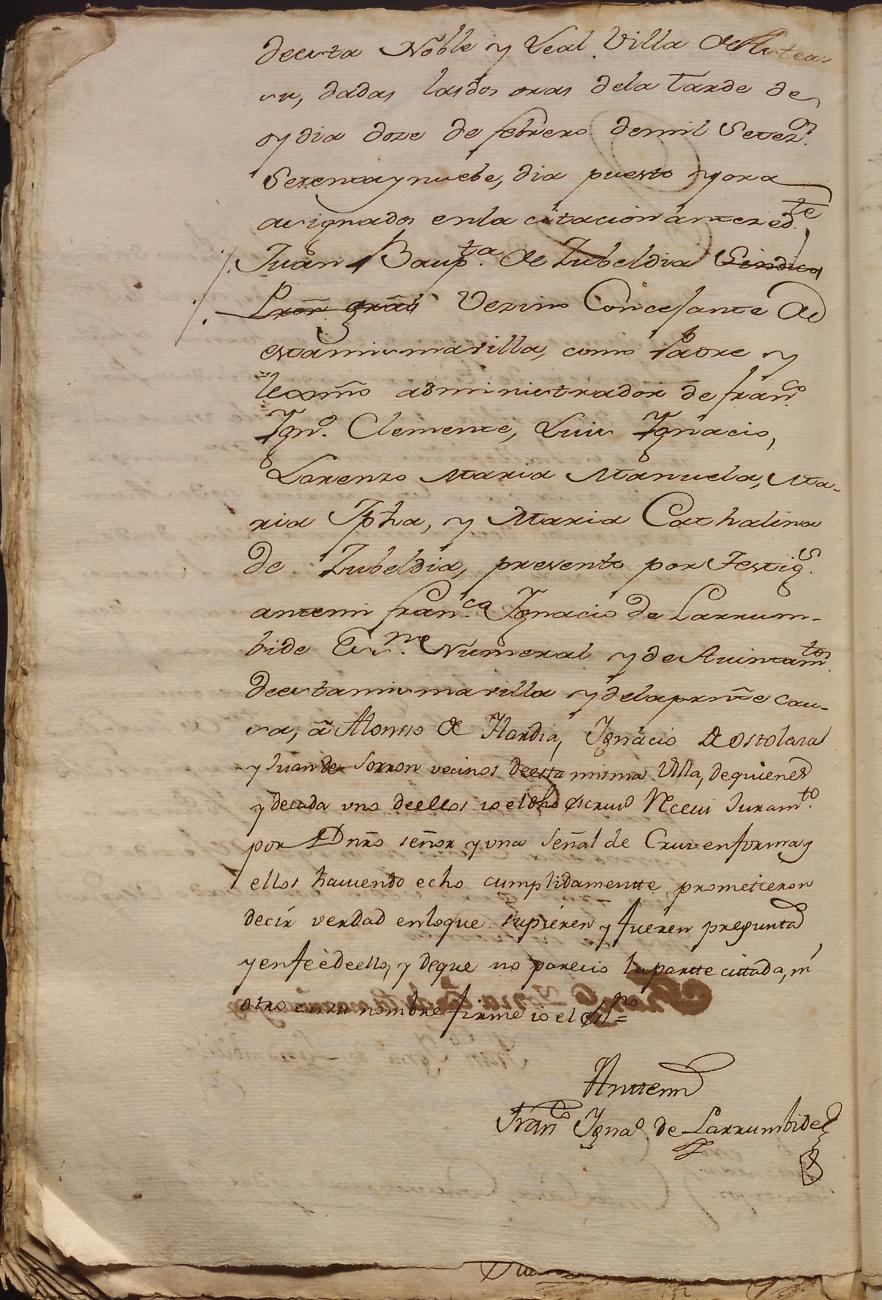 de esta Noble y Leal Villa de Asteas
su, dadas las dos oras dela tarde de
oy dia doze de febrero de mil Setez.os
Setenta y nuebe, dia puesto y ora
asignados en la citacion anteced.te
Juan Baup.ta de Zubeldia Sindico
Prõr grãl Vezino Concejante de
esta misma villa, como Padre y
lexmõ administrador de fran.co
Ygn.o Clemente, Luis Ygnacio,
Lorenzo Maria Manuela, Ma-
ria Jpha, y Maria Cathalina
de Zubeldia, presento por Testig.s
antemi fran.co Ygnacio de Larrum-
bide Es.no Numeral y de Aiuntam.tos
de esta misma villa y de la prñte cau-
sa, â Alonsso de Ilardia, Ygnacio de Ostolaza
y Juan de Sorron vecinos de esta misma Villa, de quienes
y de cada uno de ellos io el dho escriuo Receui Juram.to
por Dios nrõ señor y una señal de Cruz en forma y
ellos hauiendo echo cumplidamente, prometieron
decir verdad en loque supieren y fueren preguntad
y en feè de ello, y de que no parecio la parte citada, ni
otro en su nombre firmè io el ess.no =
Antemi
Fran.co Ygna.o de Larrumbide